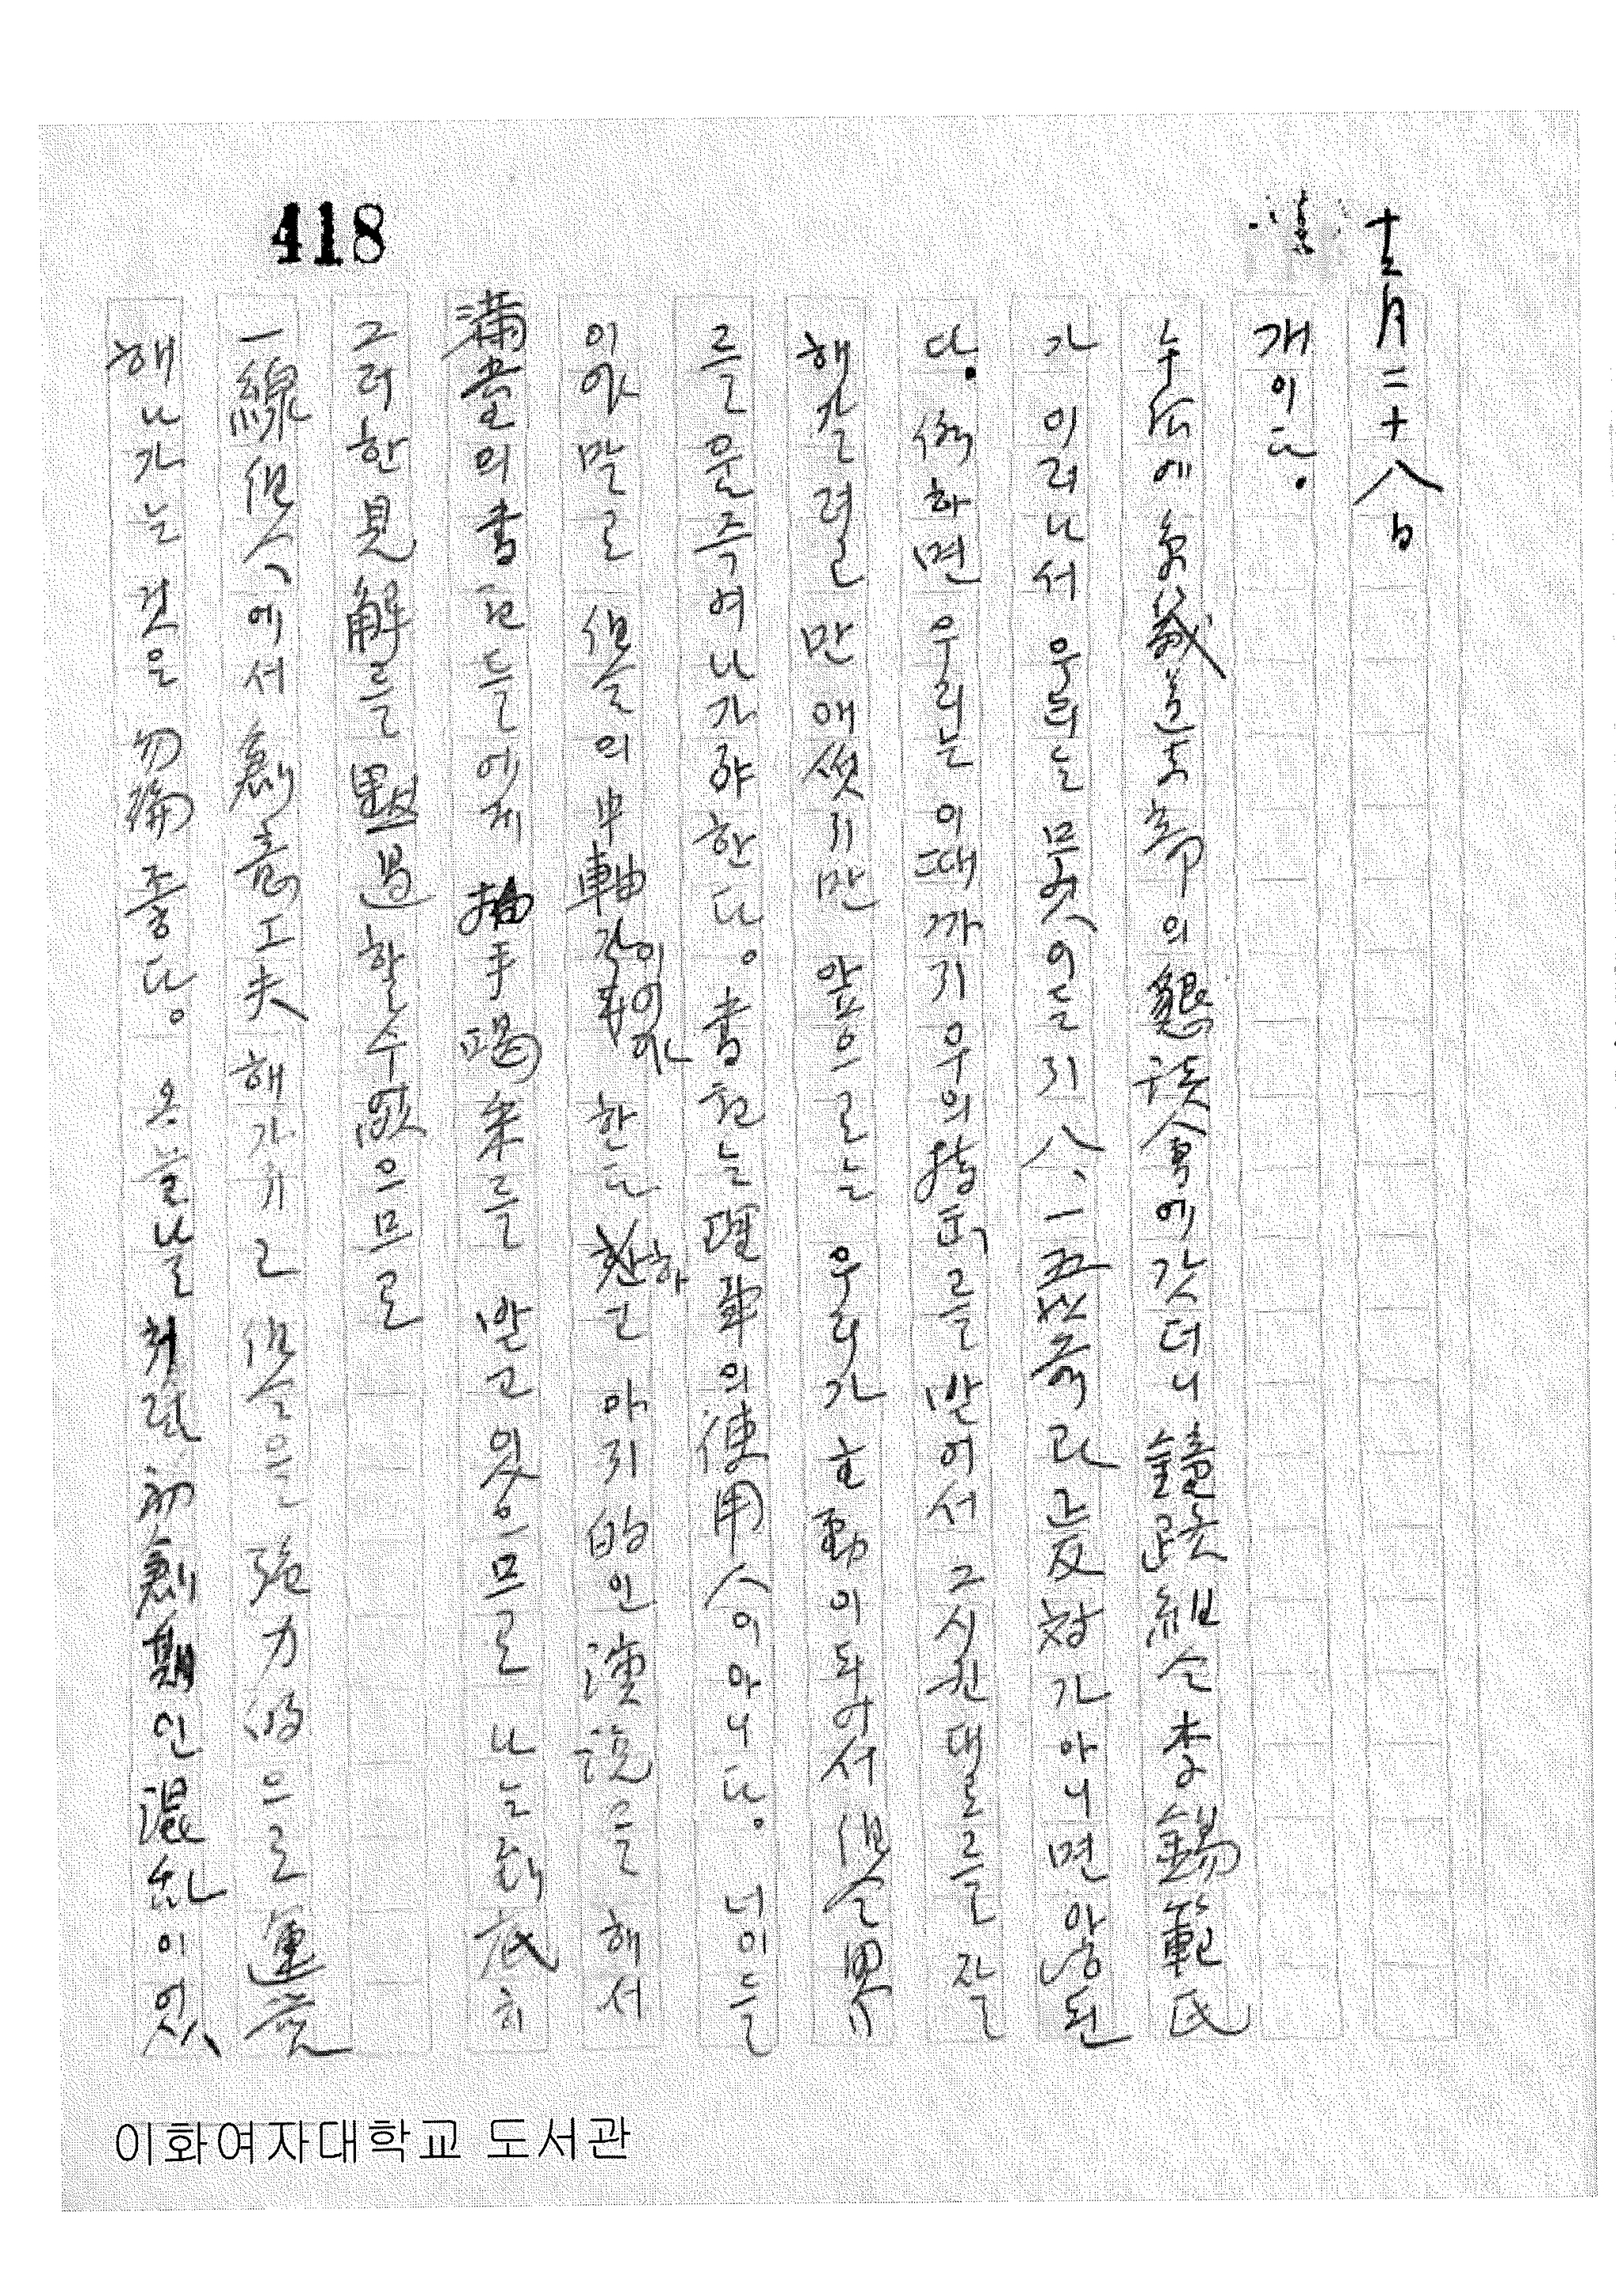 十二月二十八日
개이다.
午后에 象義道支部의 懇談会席에 갓더니 鏡路組合 李錫範氏
가 이러나서 우리는 무엇이든지 八、一五以前과는 反対가 아니면 않된
다. 하면 우리는 이때까지 우의 指示를 받어서 그 시킨대로를 잘
해갈려면 만 애썻지만 앞으로는 우리가 主動이 되어서 組合界
를 움즉여 나가야 한다. 書記는 理事의 使用人이 아니다. 너이들
이야말로 組合의 中軸이 이야 한다 하고 야지的인 演說을 해서
満堂의 書記들에게 拍手喝采를 받고 있으므로 나는 到底히
그러한 見解를 黙過할 수 없으므로
一線組合에서 創意工夫해 가지고 組合을 強力的으로 運営
해 나가는 것은 勿論 좋다. 오늘날 처럼 初創期인 混乱이 있
418
이화여자대학교 도서관